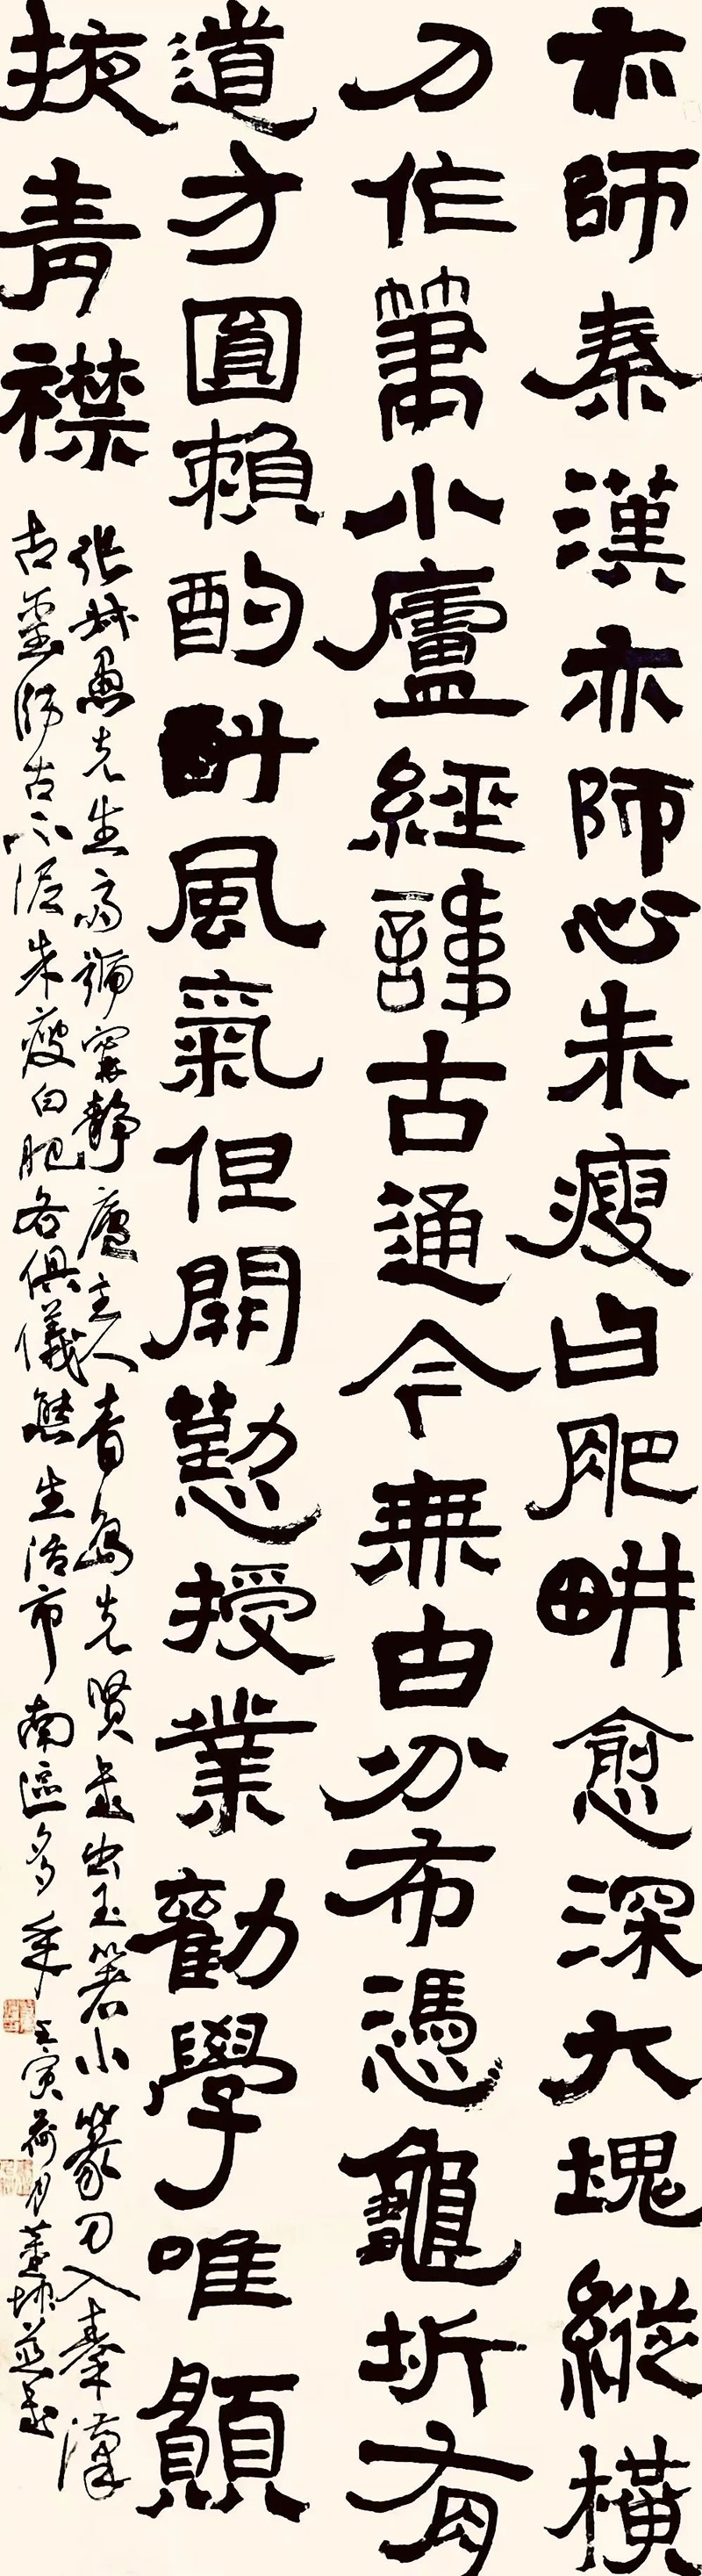 亦師秦漢亦師心朱瘦白肥畊愈深大塊縱橫
刀作筆小廬經諱古通今無由分布憑龜坼有
道方圓賴酌斟風氣但開懃授業勸學唯願
掖青襟
張城愚先生齋號寧靜廬主人青島先賢書出玉箸小篆刀入秦漢
古璽師古不泥朱瘦白肥各俱儀態生活市南區多年壬寅荷月